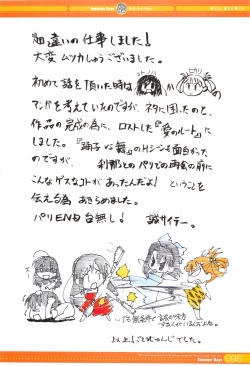 Summer Days
畑違いの仕事しました!
大変ムツカしゅうございました。
初めて話を頂いた時は
アンナを考えていたのですが、ネタに困ったのと、
作品の完成の為に、ロストした『愛のルート』に
しました。『踊子VS舞』のHシーンも面白かった
のですが、刹那とのパリでの再会の前に
こんなゲスなコトがあったんだよ!ということを
伝える為あきらめました。
パリEND台無し!誠サイテー。
以上!ごとうじゅんじでした。
Summer Days
096